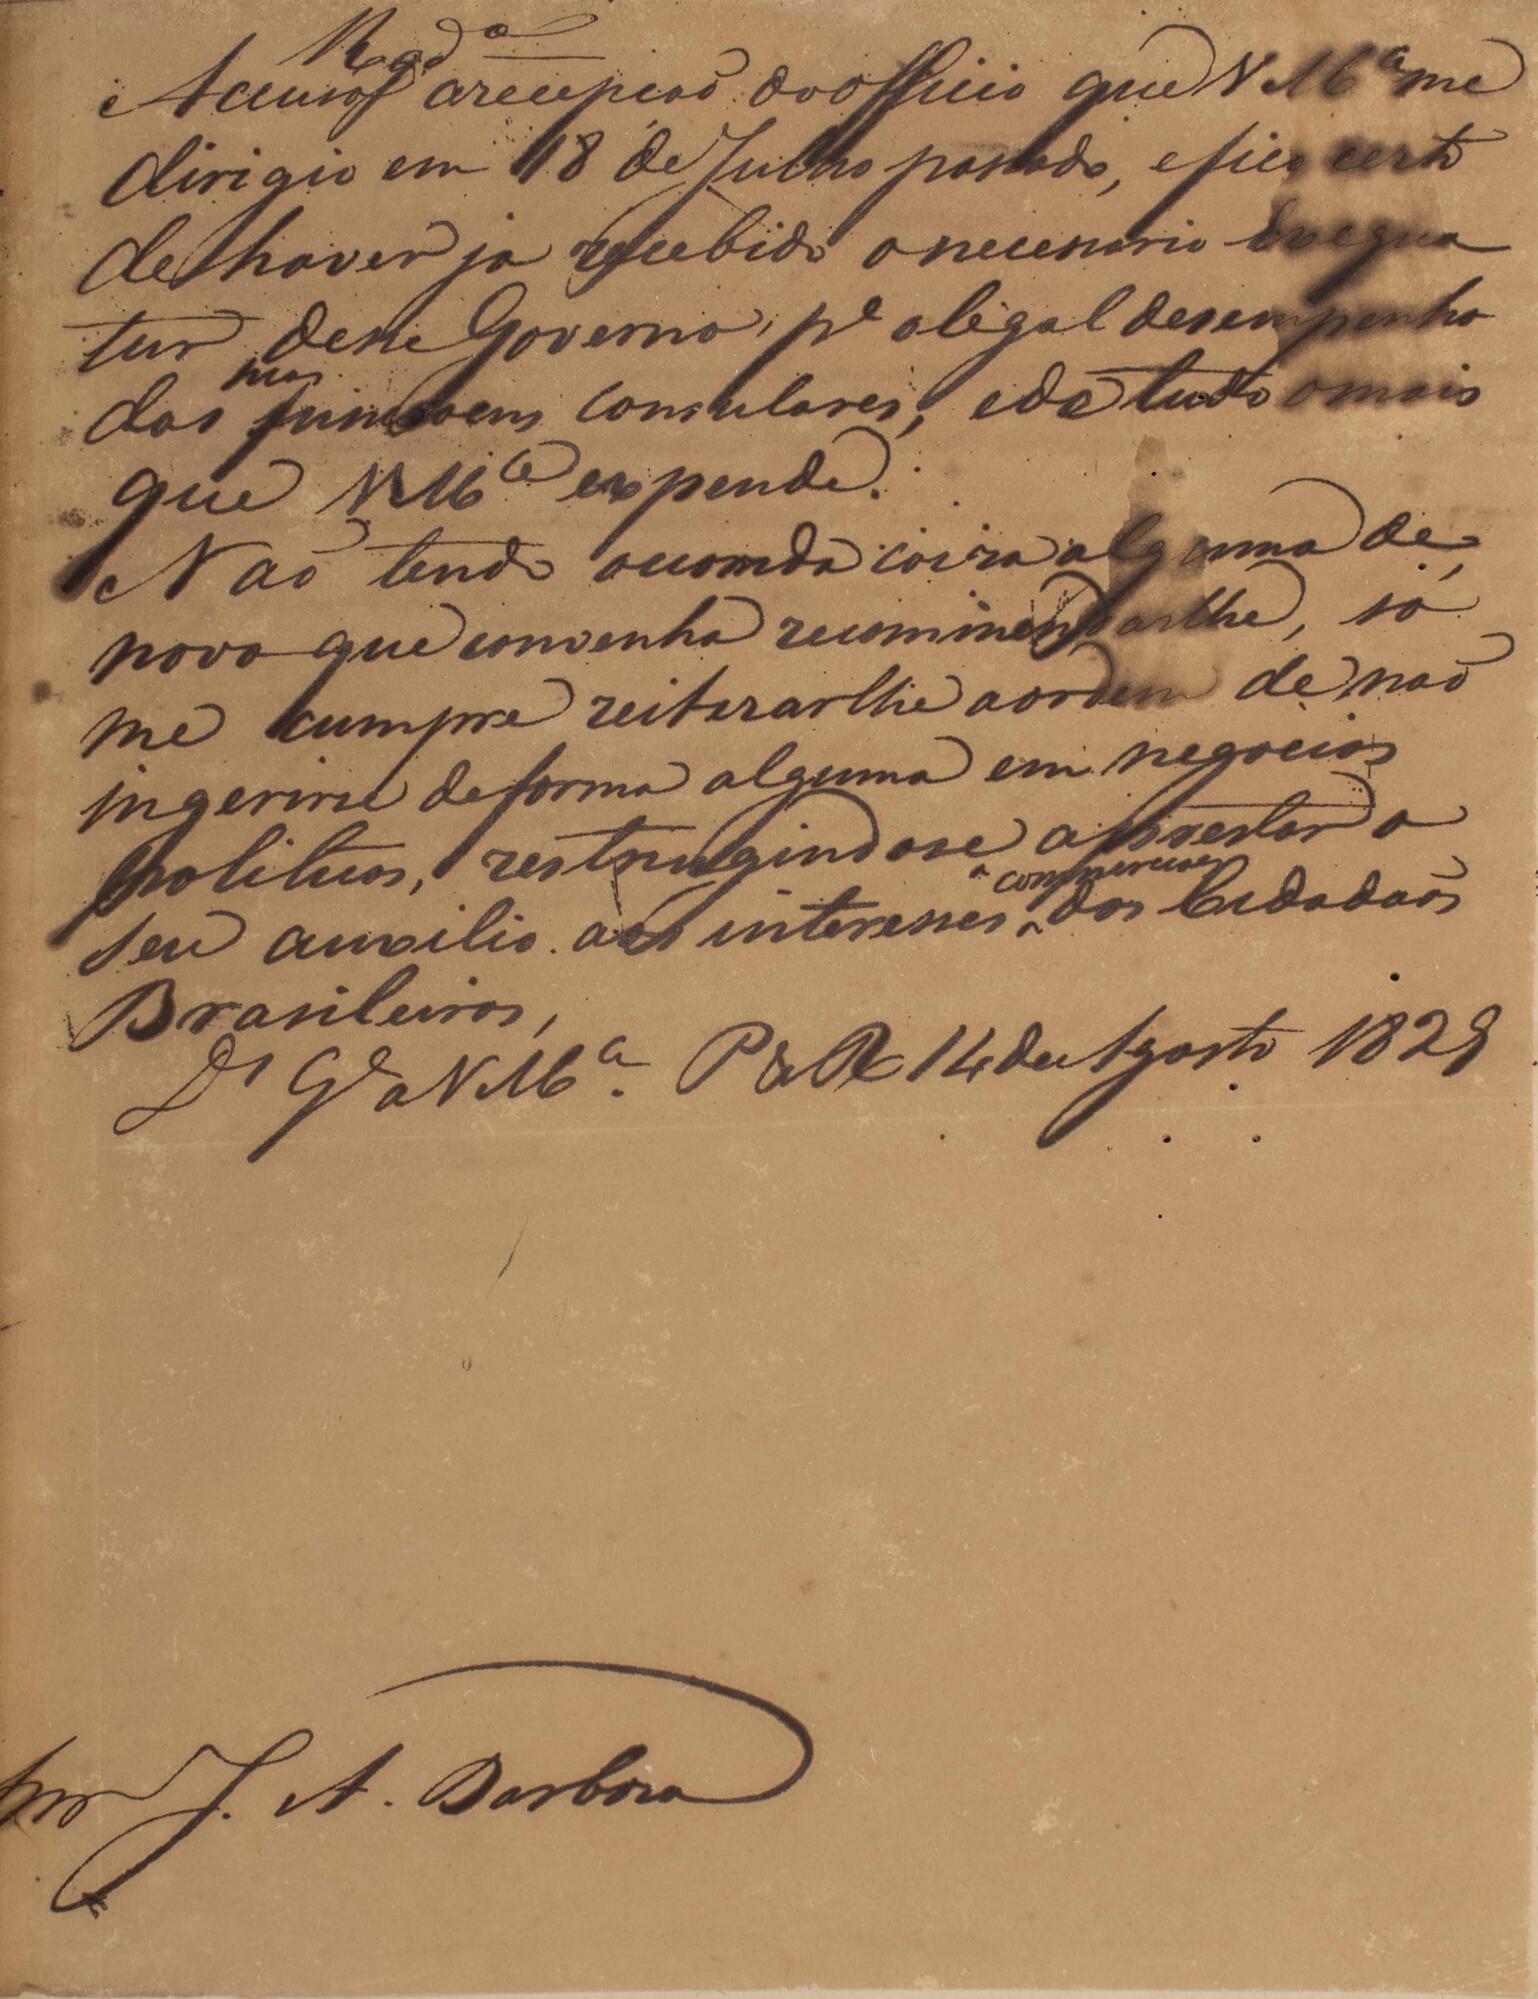 Reg.da
Accuso arecepcaõ doofficio que V M.ce me
dirigio em 18 de Julho passado, efico certo
dehaver ja recebido o necessario Exequa
tur desse Governo, p.a olegal desempenho
das suas funcoens Consulares, ede tudo omais
que V M.ce expende.
Naõ tendo occorrido coiza alguma de
novo que convenha recommendarlhe, só
me cumpre reiterarlhe aordem de naõ
ingerirse deforma alguma em negocios
politicos, restringindose aprestar o
seu auxilio aos interesses commerciaes dos Cidadaõs
Brasileiros,
D.s G.e a V M.ce P do R 14 de Agosto 1829
Snr J. A. Barbosa